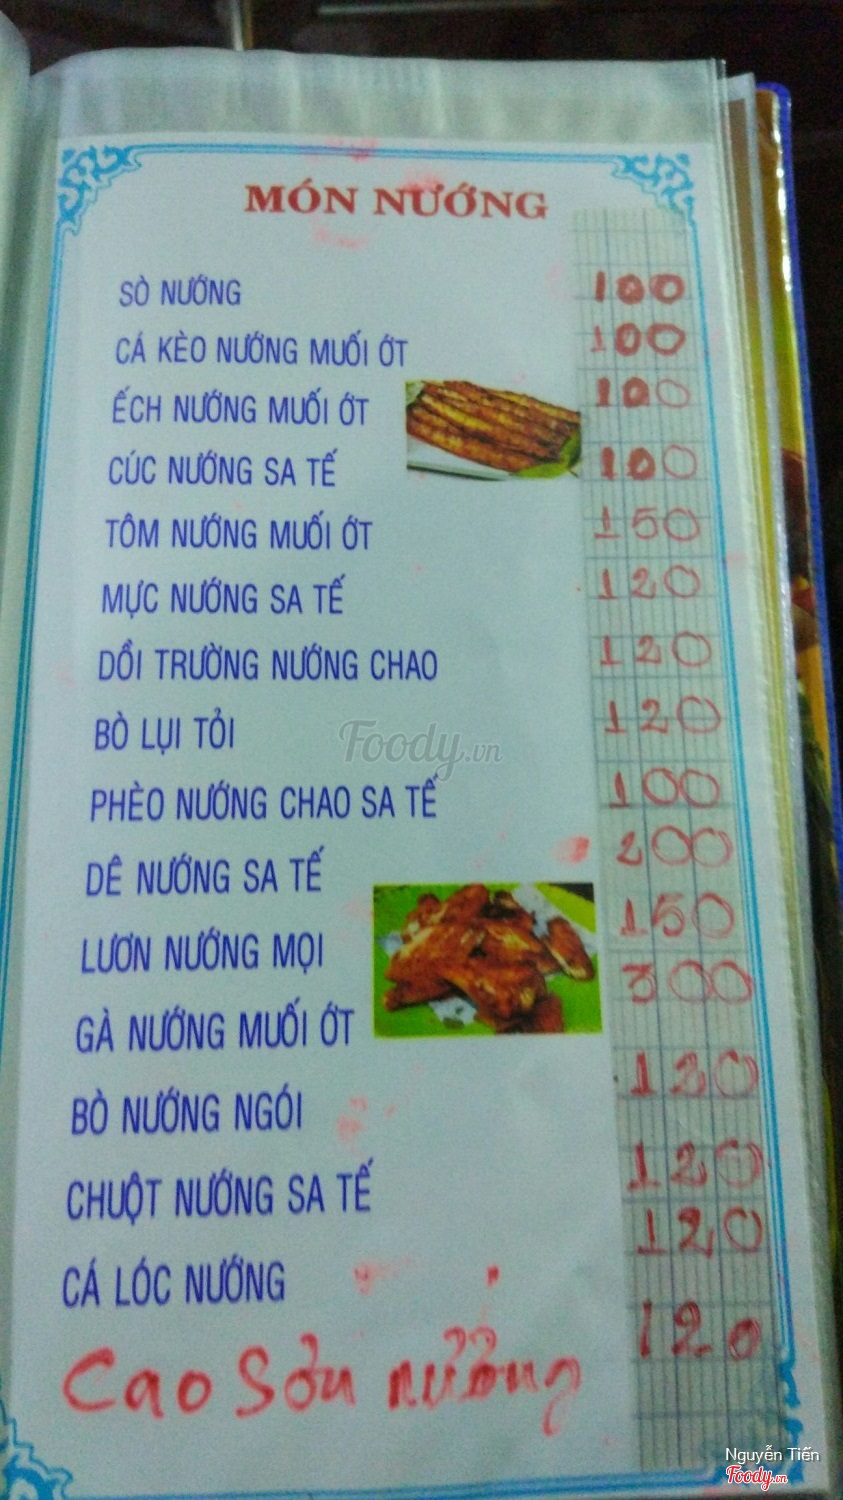 MÓN NƯỚNG
SÒ NƯỚNG 100
CÁ KÈO NƯỚNG MUỐI ỚT 100
ẾCH NƯỚNG MUỐI ỚT 100
CÚC NƯỚNG SA TẾ 100
TÔM NƯỚNG MUỐI ỚT 150
MỰC NƯỚNG SA TẾ 120
DỒI TRƯỜNG NƯỚNG CHAO 120
BÒ LỤI TỎI 120
Foody.vn
PHÈO NƯỚNG CHAO SA TẾ 100
DÊ NƯỚNG SA TẾ 200
LƯƠN NƯỚNG MỌI 150
GÀ NƯỚNG MUỐI ỚT 300
BÒ NƯỚNG NGÓI 120
CHUỘT NƯỚNG SA TẾ 120
CÁ LÓC NƯỚNG 120
Cao Sơn nướng 120
Nguyễn Tiến
Foody.vn